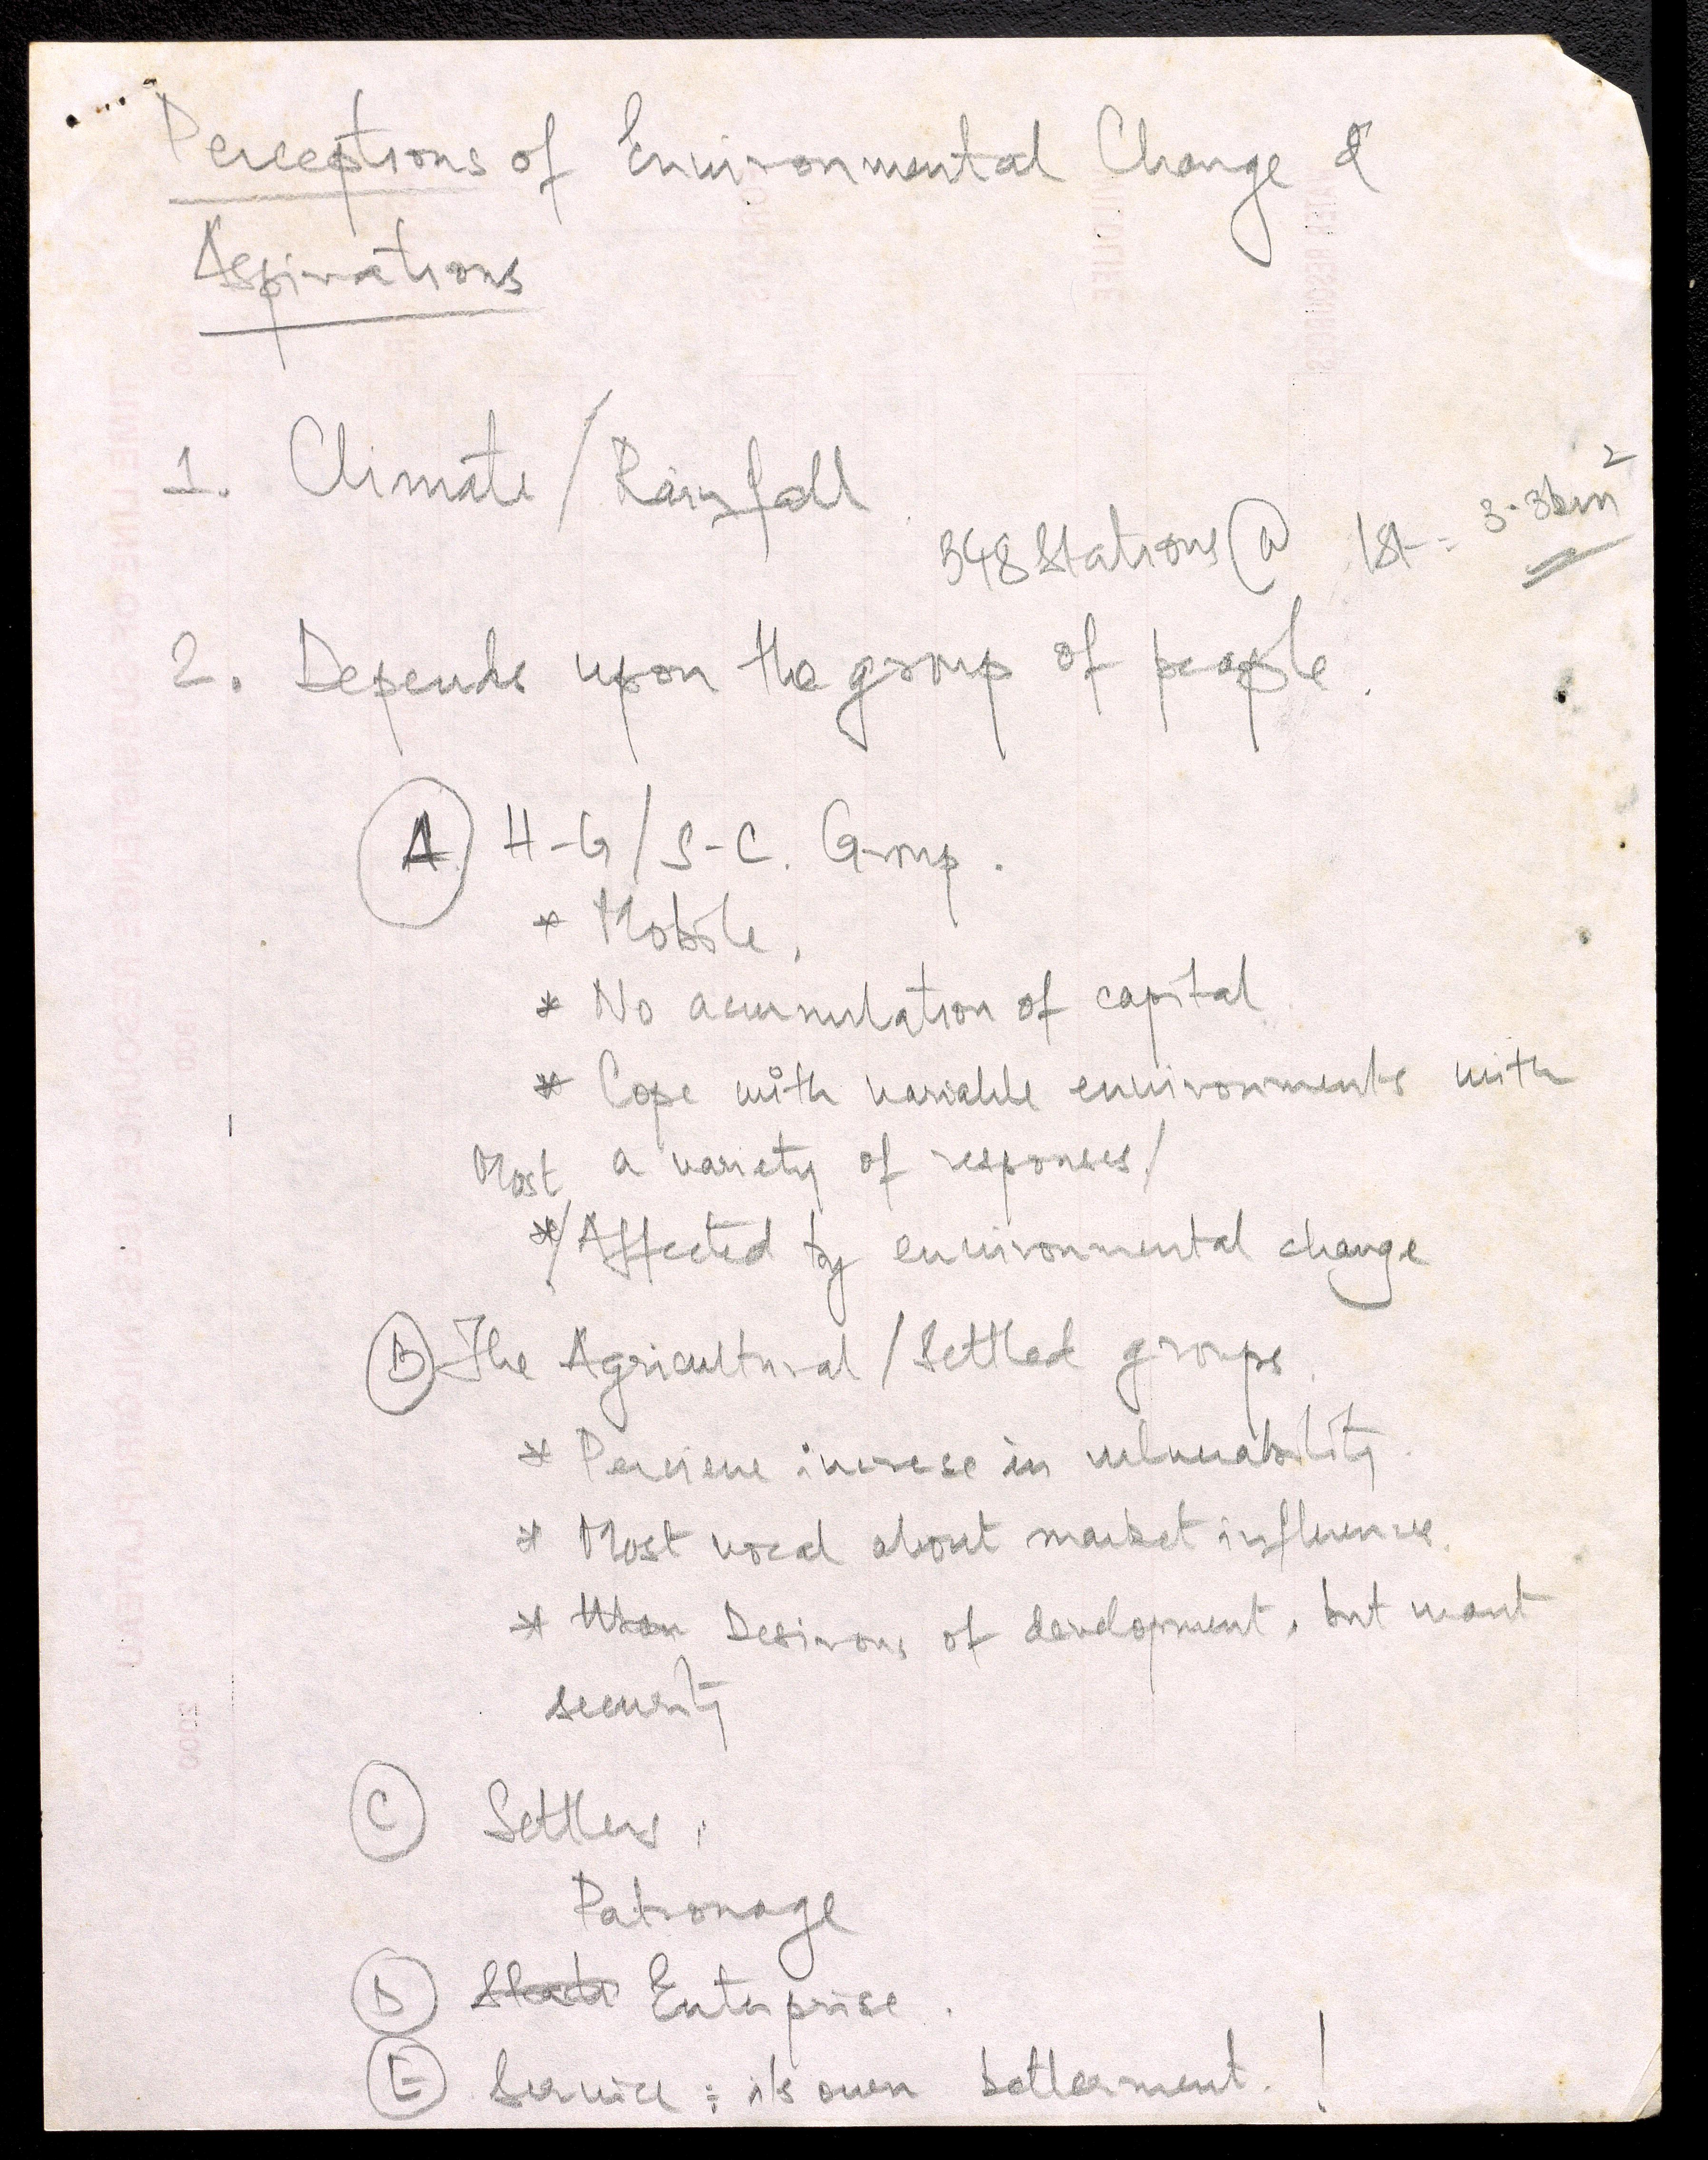 Perceptions of Environmental Change &
Aspirations
1. Climate / Rainfall
348 Stations @ 1st = 3.3km²
2. Depends upon the group of people.
A. H-G / S-C. Group.
* Mobile.
* No acumulation of capital
* Cope with variable environments with
a variety of responses/
Most
* / Affected by environmental change
B The Agricultural / Settled groups.
* Percieve increse in vulnerability.
* Most vocal about market influence.
* Desirous of development, but want
security
C Settlers,
Patronage
D Enterprise.
E Service : it's own betterment. !